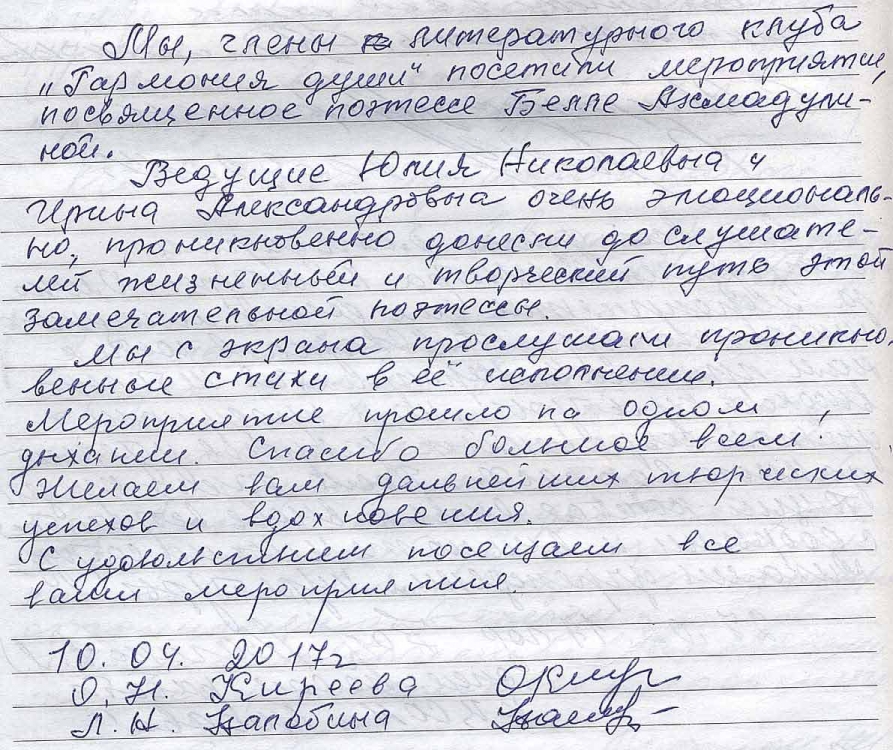 Мы, члены литературного клуба
„Гармония души“ посетили мероприятие,
посвященное поэтессе Белле Ахмадули-
ной.
Ведущие Юлия Николаевна и
Ирина Александровна очень эмоциональ-
но, проникновенно донесли до слушате-
лей жизненный и творческий путь этой
замечательной поэтессы.
Мы с экрана прослушали проникно-
венные стихи в её исполнении.
Мероприятие прошло на одном
дыхании. Спасибо большое всем!
Желаем вам дальнейших творческих
успехов и вдохновения.
С удовольствием посещаем все
ваши мероприятия.
10.04.2017г
О.Н. Киреева
Л.Н.